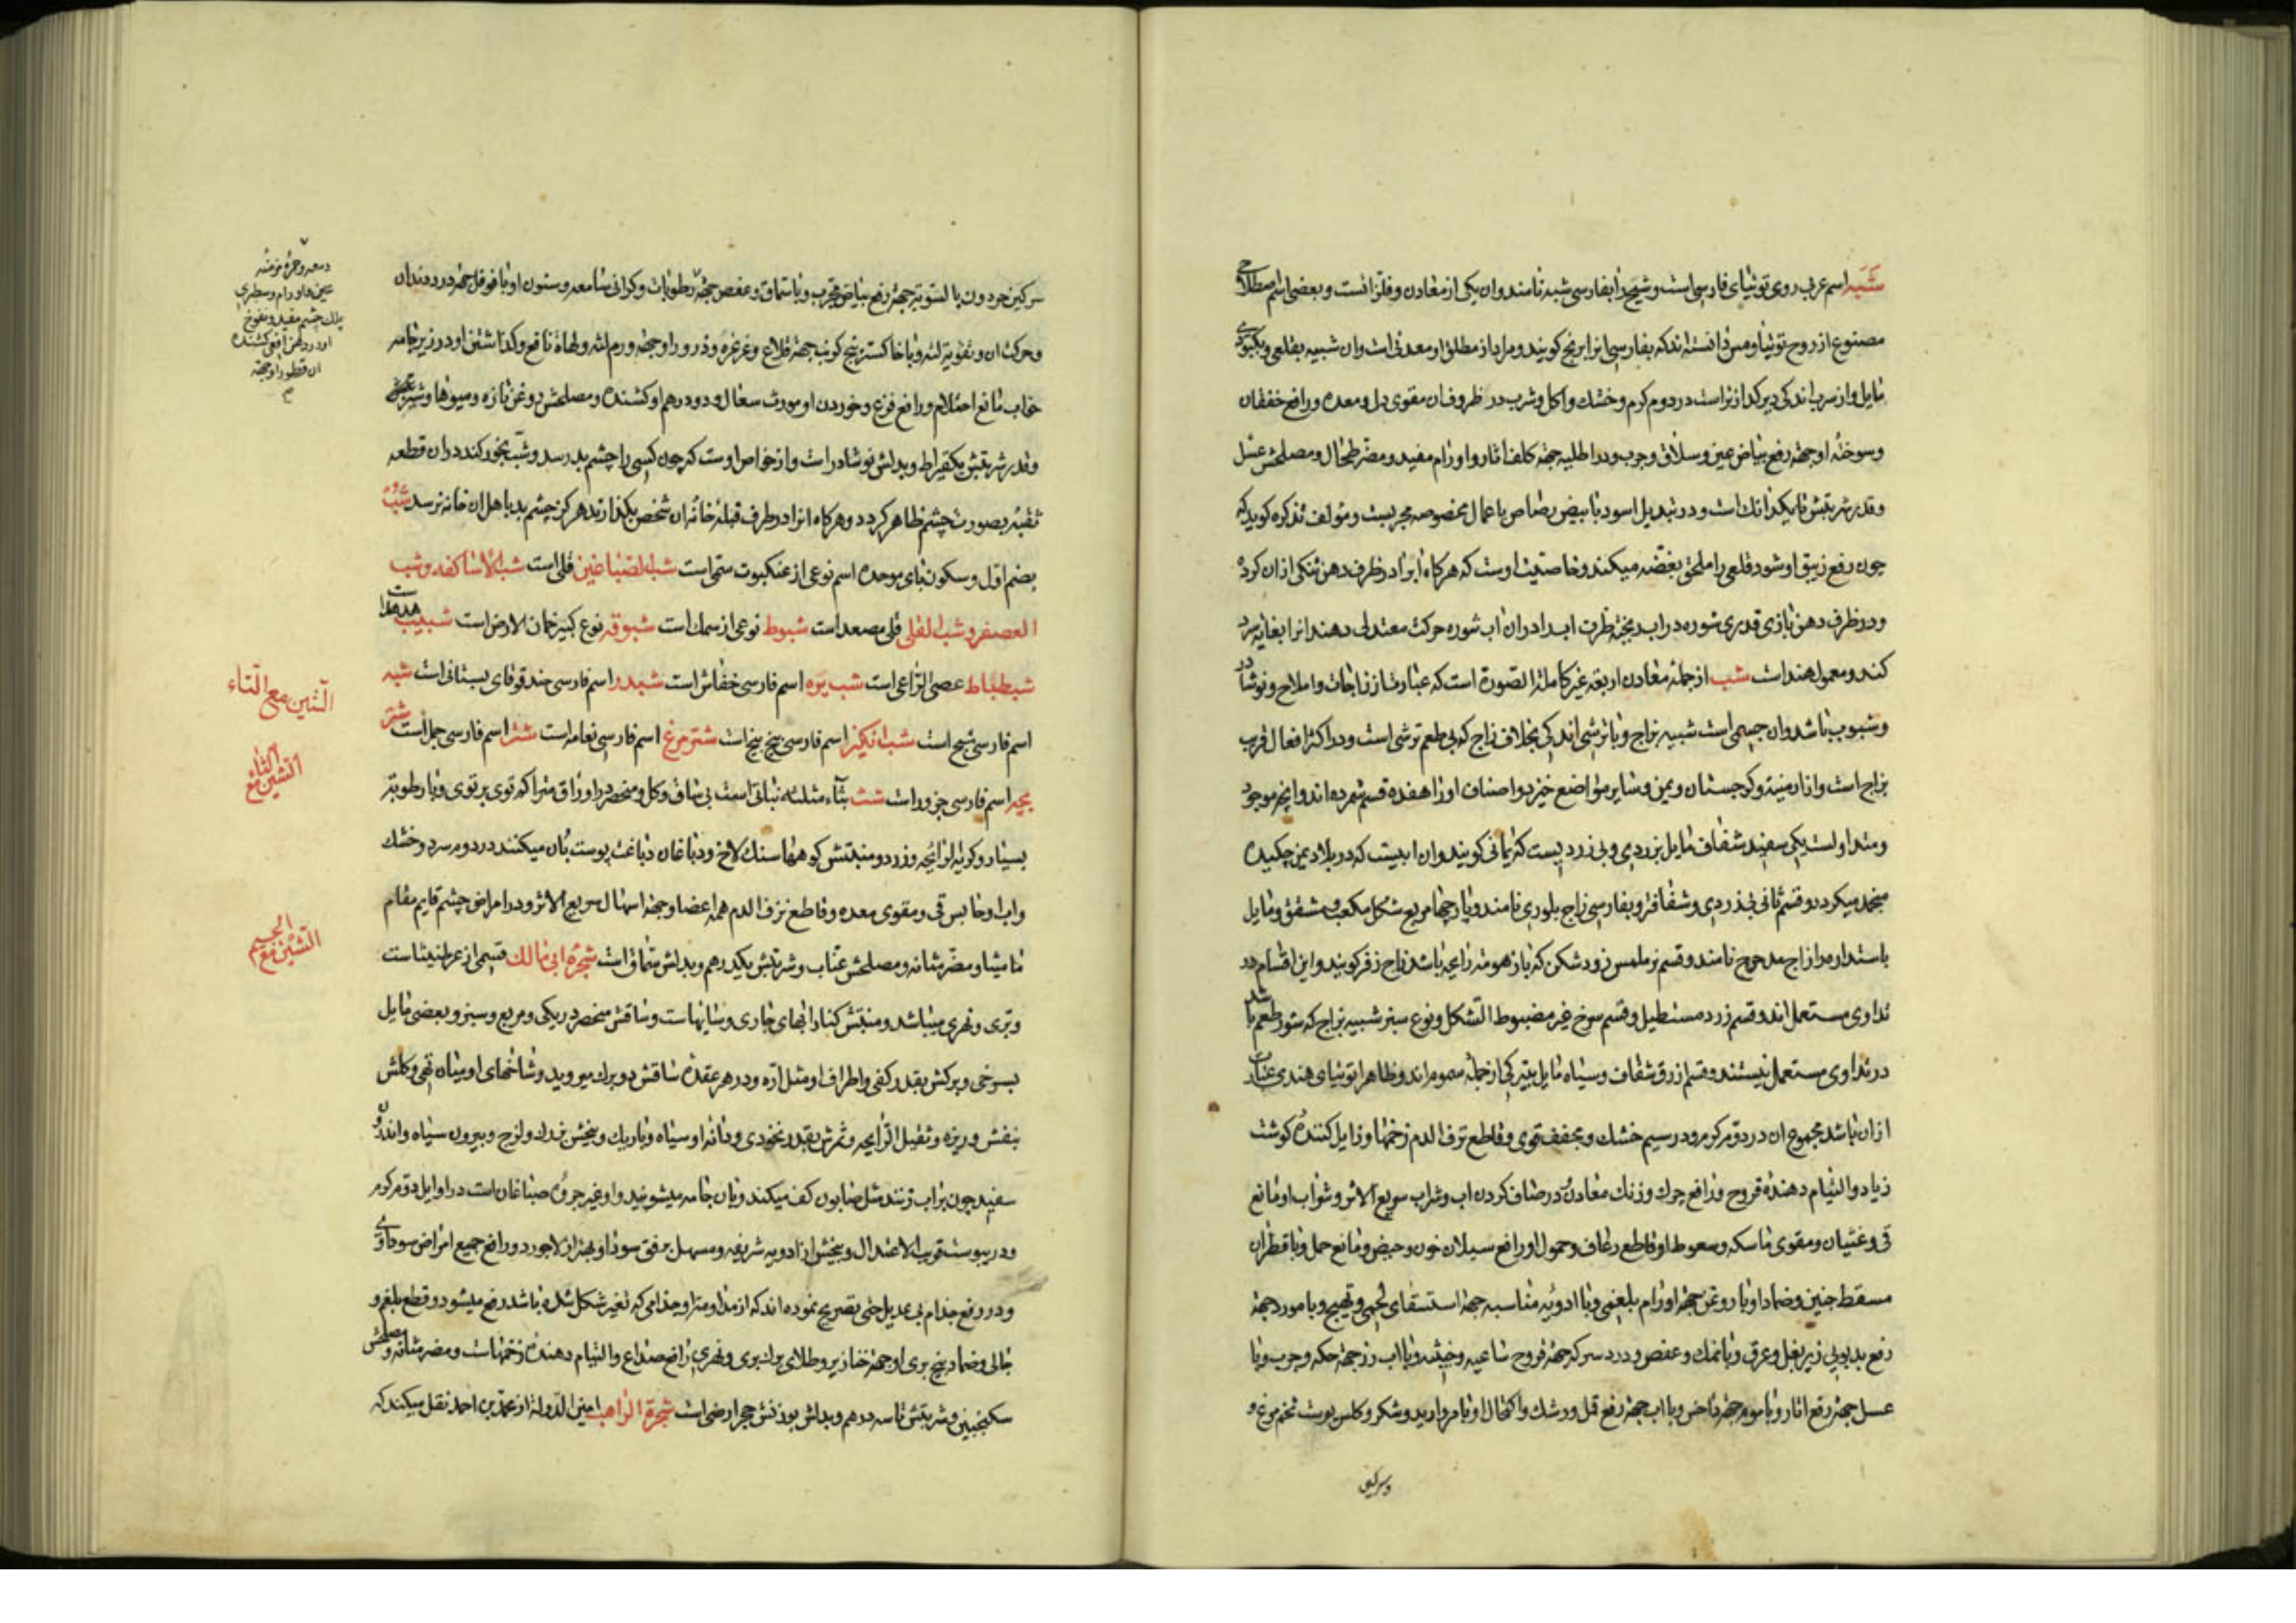 شبه اسم عربی روی توتیای فارسی است و شبح را بفارسی شبه نامند و آن یکی از معادن و فلزاتست و بعضی اسم
مصنوع از روح توتیا و مس دانسته اند که بفارسی آنرا برنج کویند و مراد از مطلق او معدنی است و آن شبیه بقلعی و بکبودی
مایل و از سرب اندکی دیرکدازتر است در دوم کرم و خشک و اکل و شرب در ظروف آن مقوی دل و معده و رافع خفقان
و سوخته او جهة رفع بیاض عین و سلاق و جرب و در اطلیه جهة کلف و آثار و اورام مفید و مضر طحال و مصلحش عسل
و قدر شربتش تا یکدانک است و در تبدیل اسود بابیض رصاص باعمال مخصوصه مجربست و مؤلف تذکره کوید که
چون رفع زیبق او شود قلعی را ملحق بفضه میکند و خاصیت اوست که هرکاه آبرا در ظرف دهن تنکی از آن کرده
و در ظرف دهن بازی قدری شوره در آب ریخته ظرف آب را در آن آب شوره حرکت معتدلی دهند آنرا بغایة سرد
کند و معمول هند است شب از جمله معادن اربعه غیر کاملة الصورة است که عبارت از زاجات و املاح و نوشادر
و شبوب باشد و آن جسمی است شبیه بزاج و با ترشی اندکی بخلاف زاج که بی طعم ترشی است و در اکثر افعال قریب
بزاج است و از ارمنیه و کرجستان و یمن و سایر مواضع خیزد و اصناف او را هفده قسم شمرده اند و آنچه موجود
و متداولست یکی سفید شفاف مایل بزردی و بی زردیست که یمانی کویند و آن آبیست که در بلاد یمن چکیده
منجمد میکردد و قسم ثانی بی زردی و شفافتر و بفارسی زاج بلوری نامند و پارچها مربع شکل مکعب و مشقق و مایل
باستداره را زاج مدحرج نامند و قسم نرم ملمس زود شکن که با زهومة رایحه باشد زاج زفر کویند و این اقسام در
تداوی مستعمل اند و قسم زرد مستطیل و قسم سرخ غیر مضبوط الشکل و نوع سبز شبیه بزاج که شور طعم باشد
در تداوی مستعمل نیستند و قسم ازرق شفاف و سیاه مایل بتیرکی از جمله سموم اند و ظاهرا توتیای هندی عبارت
از آن باشد مجموع آن در دوم کرم و در سیم خشک و مجفف قوی و قاطع نزف الدم زخمها و زایل کننده کوشت
زیاد و التیام دهنده قروح و رافع چرک و زنک معادن و در صاف کردن آب و شراب سریع الاثر و شراب او مانع
قی و غثیان و مقوی ماسکه و سعوط او قاطع رعاف و حمول او رافع سیلان خون و حیض و مانع حمل و با قطران
مسقط جنین و ضماد او با روغن جهة اورام بلغمی و با ادویه مناسبه جهة استسقای لحمی و تهبج و با مورد جهة
رفع بدبویی زیر بغل و عرق و با نمک و عفص و درد سرکه جهة قروح ساعیه و خبیثه و با آب رز جهة حکه و جرب و با
عسل جهة رفع آثار و با موم جهة داخس و با آب جهة رفع قمل و رشک و اکتحال او با مروارید و شکر و کلس پوست تخم مرغ و
وسرکین
سرکین حردون بالسویه جهة رفع بیاض مجرب و با سماق و عفص جهة رطوبات و کرانی سامعه و سنون او با فوفل جهة درد دندان
و حرکت آن و تقویة لثه و با خاکستر بیخ کرنب جهة قلاع و غرغره و ذرور او جهة ورم لثه و لهاة نافع و کذاشتن او در زیر جامه
خواب مانع احتلام و رافع فزع و خوردن او مورث سعال و دو درهم او کشنده و مصلحش روغن تازه و میوها و شیر
و قدر شربتش یکقیراط و بدلش نوشادر است و از خواص اوست که چون کسی را چشم بد رسد و شب بخور کنند در آن قطعه
ثقبه بصورت چشم ظاهر کردد و هرکاه آنرا در طرف قبله خانه آن شخص بکذارند هرکز چشم بد باهل آن خانه نرسد شبث
بضم اول و سکون بای موحده اسم نوعی از عنکبوت سمی است شب الصباغین قلی است شب الاساکفه و شب
العصفر و شب القلی قلی مصعد است شبوط نوعی از سمک است شبوقه نوع کبیر خمان الارض است شبیب هدهد است
شبطباط عصی الراعی است شب پره اسم فارسی خفاش است شبدر اسم فارسی حندقوقای بستانی است شبه
اسم فارسی سبج است شب انکیز اسم فارسی بیخ بنج است شترمرغ اسم فارسی نعامه است شتر اسم فارسی جمل است شتر
بچه اسم فارسی جزور است شث بثاء مثلثه نباتی است بی ساق و کل و منحصر در اوراق متراکم توی بر توی و با رطوبة
بسیار و کریه الرایحه و زرد و منبتش کوهها سنک لاخ و دباغان دباغت پوست بآن میکنند در دوم سرد و خشک
و آب او حابس قی و مقوی معده و قاطع نزف الدم همه اعضا و جهة اسهال سریع الاثر و در امراض چشم قایم مقام
مامیثا و مضر مثانه و مصلحش عناب و شربتش یکدرهم و بدلش سماق است شجرة ابی مالک قسمی از عرطنیثا است
و بری و نهری میباشد و منبتش کنار آبهای جاری و سایهاست و ساقش منحصر در یکی و مربع و سبز و بعضی مایل
بسرخی و برکش بقدر کفی و اطراف او مثل اره و در هر عقده ساقش دو برک میروید و شاخهای او میان تهی و کلش
بنفش و ریزه و ثقیل الرایحه و ثمرش بقدر نخودی و دانه او سیاه و باریک و بیخش نرم و لزج و بیرون سیاه و اندرون
سفید چون بر آب زنند مثل صابون کف میکند و بآن جامه میشویند و او غیر چوبک صباغان است در اوایل دوم کرم
و در یبوست قریب الاعتدال و بیخش از ادویه شریفه و مسهل برفق سودا و بهتر از لاجورد و رافع جمیع امراض سوداوی
و در رفع جذام بی عدیل حتی تصریح نموده اند که از مداومة او جذامی که تغیر شکل شده باشد رفع میشود و قطع بلغم و
جالی و ضماد بیخ بری او جهة خنازیر و طلای برک بری و نهری رافع صداع و التیام دهنده زخمهاست و مضر مثانه و مصلحش
سکنجبین و شربتش تا سه درهم و بدلش بوزنش حجر ارمنی است شجرة الراهب امین الدوله از محمد بن احمد نقل میکند که
دمعه و حمره مزمنه
عین و اورام و سطبری
پلک چشم مفید و نفوخ
او در دهن افعی کشنده
آن قطور او جهة
الشین مع التاء
الشین مع الثاء
الشین مع الجیم